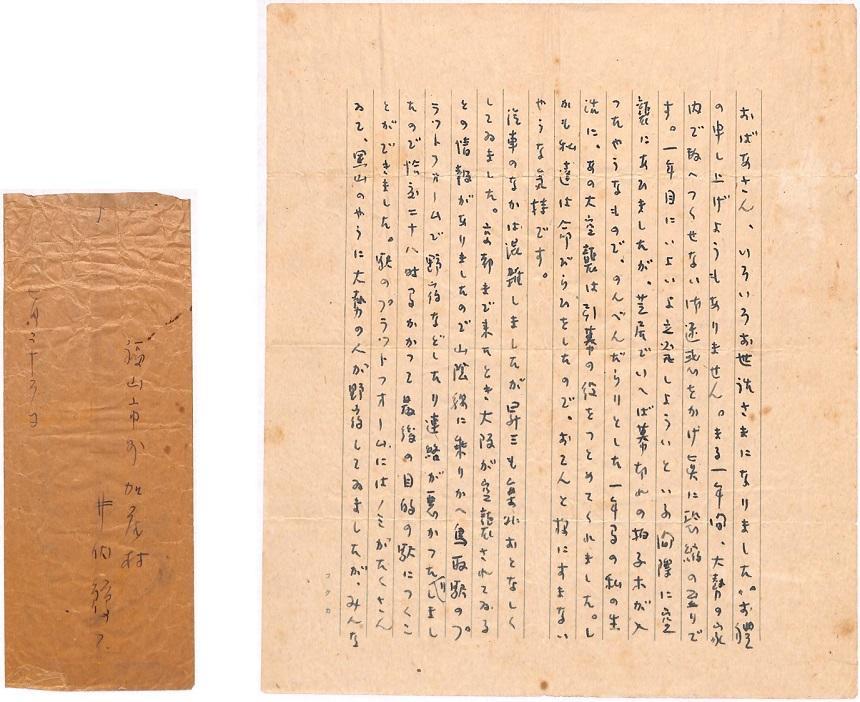 おばあさん、いろいろお世話さまになりました。お禮
の申し上げようもありません。まる一年間、大勢の家
内で敵へつくせない御迷惑をかけ実に恐縮の至りで
す。一年目にいよいよ立発しようといふ間際に空
襲にあひましたが、芝居でいへば幕切れの拍子木が入
つたやうなもので、のんべんだらりとした一年間の私の生
活に、あの大空襲は引幕の役をつとめてくれました。し
かも私達は命びろひをしたので、おてんと様にすまない
やうな気持です。
汽車のなかは混雑しましたが も案外おとなしく
してゐました。京都まで来たとき大阪が空襲されてゐる
との情報がありましたので山陰線に乗りかへ鳥取駅のプ
ラットフォームで野宿などしたり連絡が悪かつたりしまし
たので 二十八時間かかつて最後の目的の駅につくこ
とができました。駅のプラットフォームにはノミがたくさん
ゐて、 山のやうに大勢の人が野宿してゐましたが、みんな
コクカ
福山市外加茂村
井伏
七月二十 日